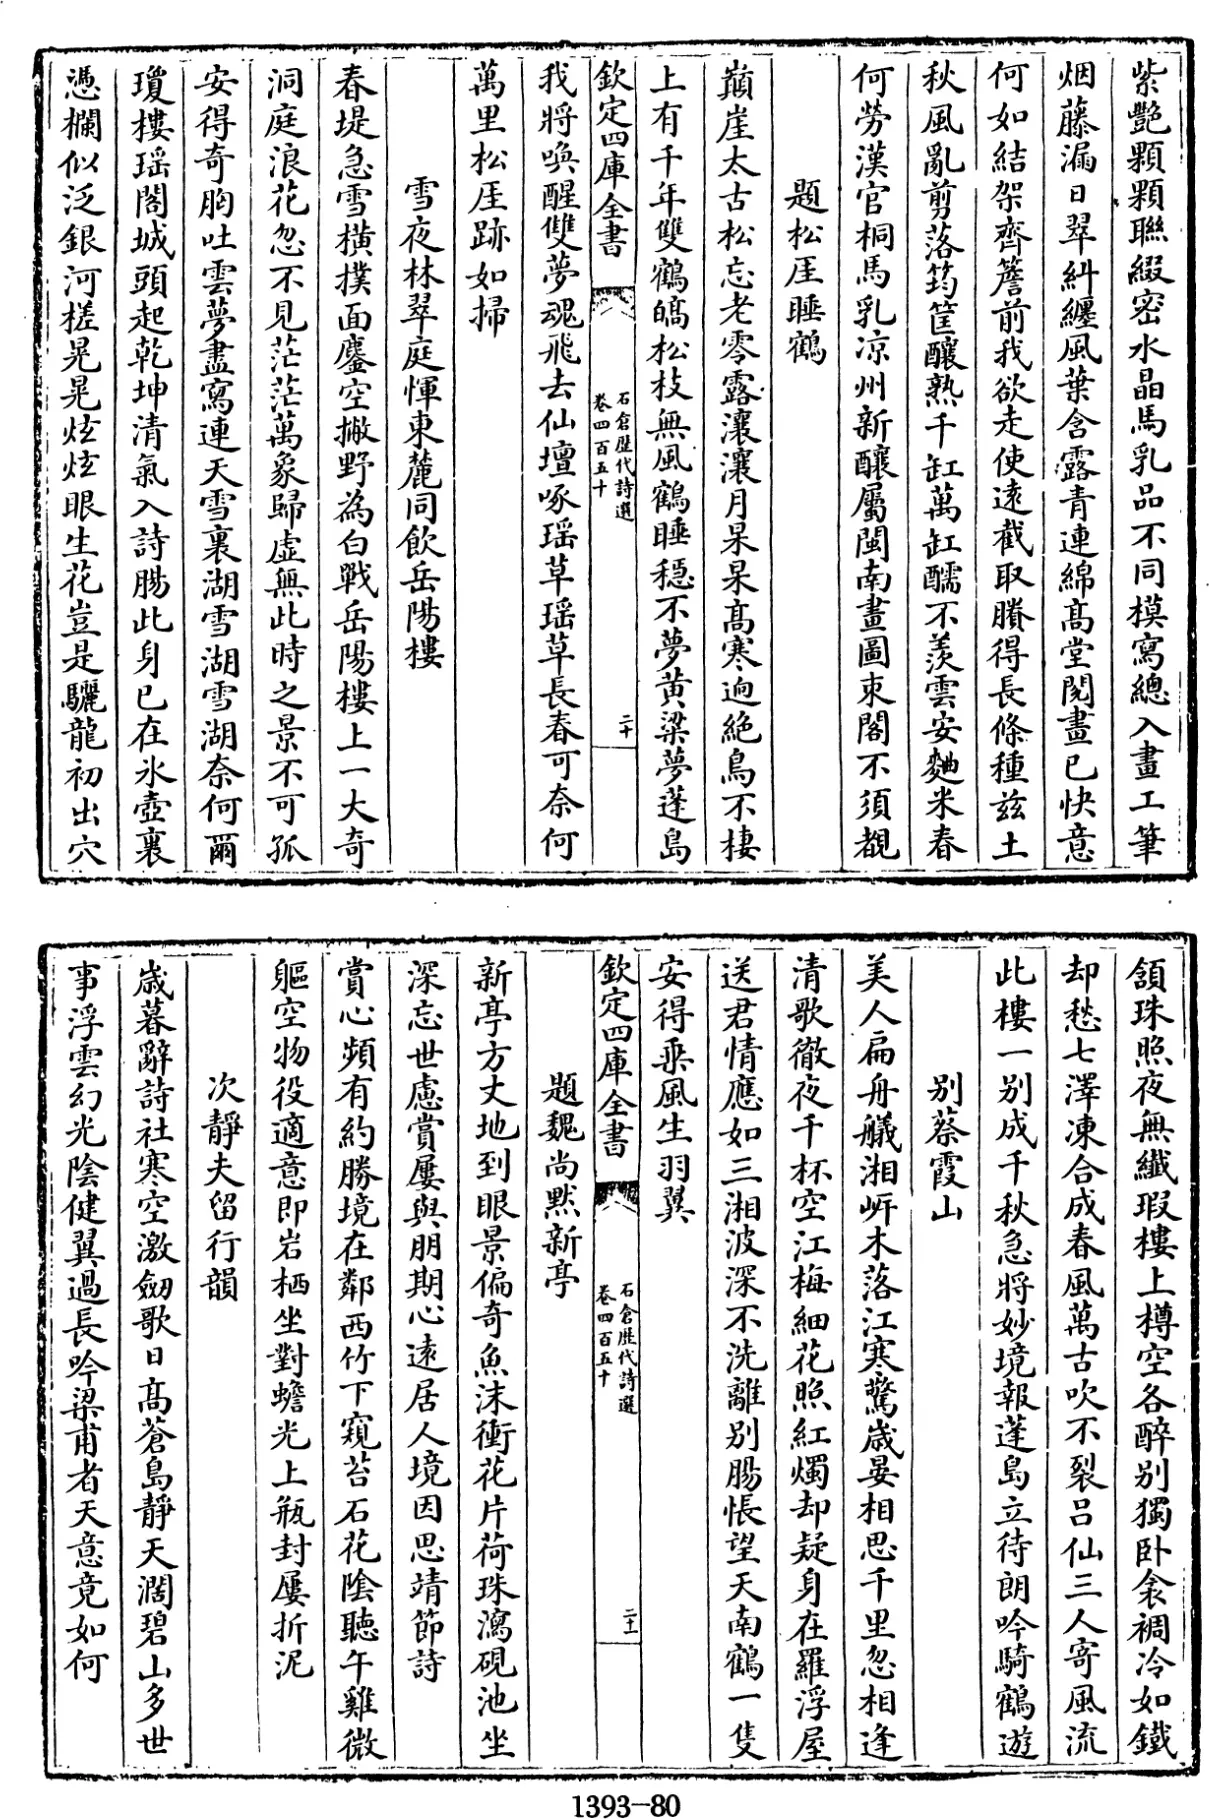 紫艶顆顆聯綴密水晶馬乳品不同模寫總入畫工筆
烟藤漏日翠糾纏風葉含露青連綿髙堂閱畫已快意
何如結架齊簷前我欲走使逺截取賸得長條種兹土
秋風亂剪落筠筐釀熟千缸萬缸醹不羡雲安麯米春
何勞漢官桐馬乳凉州新釀屬閩南畫圖東閣不須覩
題松厓睡鶴
巔崖太古松忘老零露瀼瀼月杲杲髙寒逈絶鳥不棲
上有千年雙鶴皜松枝無風鶴睡穏不夢黄粱夢蓬島
欽定四庫全書
石倉歴代詩選
卷四百五十
二十
我將喚醒雙夢魂飛去仙壇啄瑶草瑶草長春可奈何
萬里松厓跡如掃
雪夜林翠庭惲東麓同飲岳陽樓
春堤急雪横撲面鏖空撇野為白戰岳陽樓上一大奇
洞庭浪花忽不見茫茫萬象歸虚無此時之景不可孤
安得奇胸吐雲夢盡寫連天雪裏湖雪湖雪湖奈何爾
瓊樓瑶閣城頭起乾坤清氣入詩腸此身已在氷壺裏
憑欄似泛銀河槎晃晃炫炫眼生花豈是驪龍初出穴
頷珠照夜無纎瑕樓上樽空各醉别獨卧衾裯冷如鐵
却愁七澤凍合成春風萬古吹不裂吕仙三人寄風流
此樓一别成千秋急將妙境報蓬島立待朗吟騎鶴遊
别蔡霞山
美人扁舟艤湘㟁木落江寒驚歳晏相思千里忽相逢
清歌徹夜千杯空江梅細花照紅燭却疑身在羅浮屋
送君情應如三湘波深不洗離别腸悵望天南鶴一隻
安得乘風生羽翼
欽定四庫全書
石倉歴代詩選
卷四百五十
二十一
題魏尚黙新亭
新亭方丈地到眼景偏奇魚沫衝花片荷珠瀉硯池坐
深忘世慮賞屢與朋期心逺居人境因思靖節詩
賞心頻有約勝境在鄰西竹下窺苔石花陰聽午雞微
軀空物役適意即岩栖坐對蟾光上瓶封屢折泥
次靜夫留行韻
歳暮辭詩社寒空激劒歌日髙蒼島靜天濶碧山多世
事浮雲幻光陰健翼過長吟梁甫者天意竟如何
1393—80